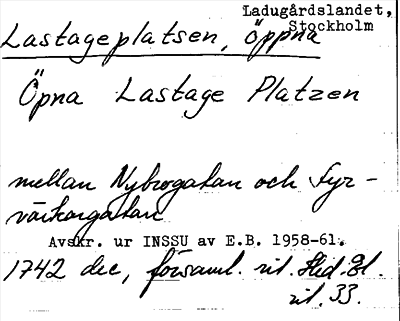 Ladugårdslandet,
Stockholm
Lastageplatsen, öppna
Öpna Lastage Platzen
mellan Nybrogatan och Fyr-
värkargatan
Avskr. ur INSSU av E.B. 1958-61.
1742 dec, församl. rit. Hed. El.
rit. 33.